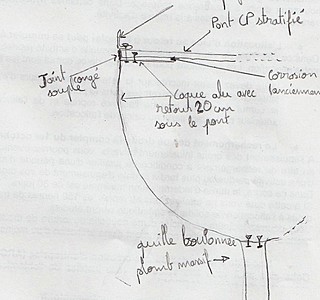 Pont CP stratifié
Joint congé
souple
Corrosion
(ancienneme
Coque alu avec
retour 20 cm
sous le pont
quille boulonnée
plomb massif